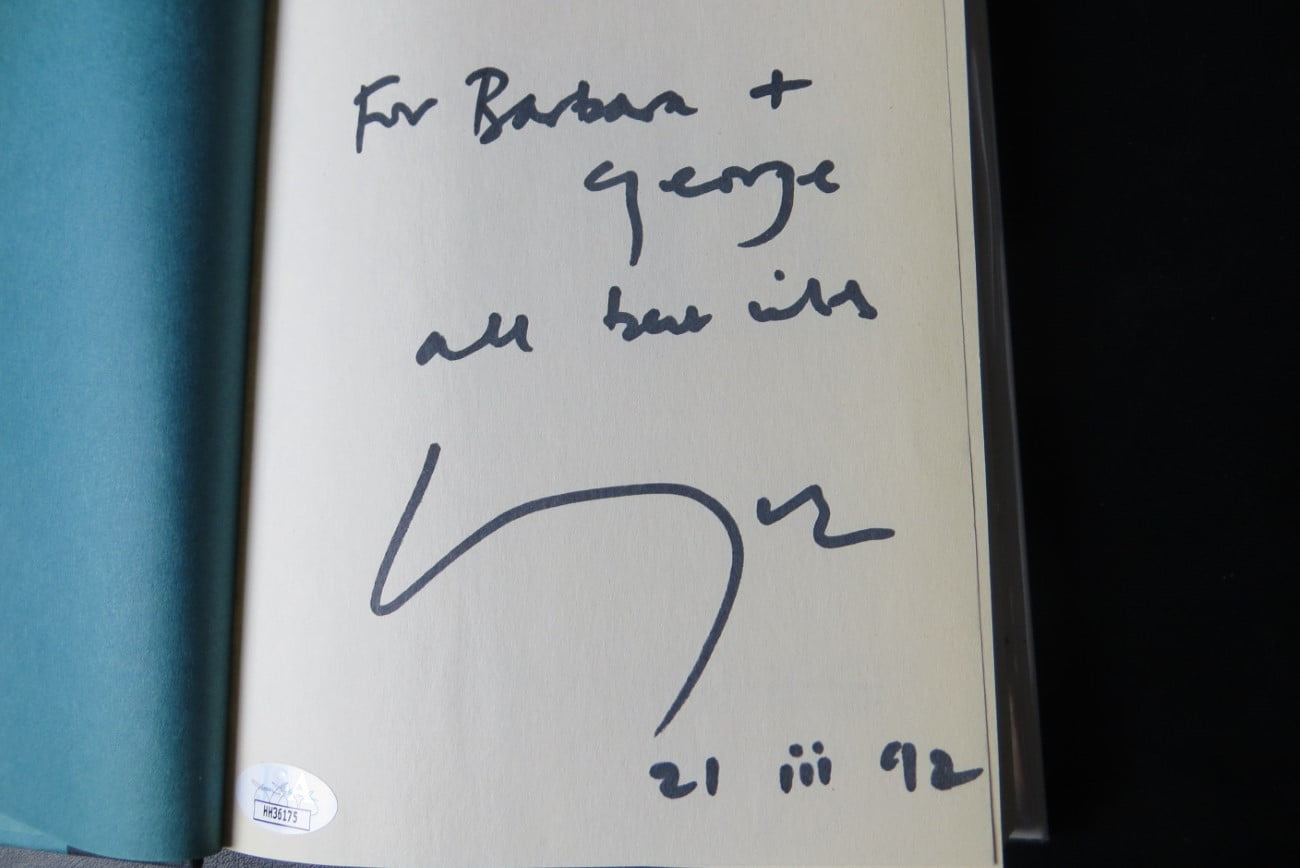 For Barbara +
George
all best wishes
21 iii 92
HH36175